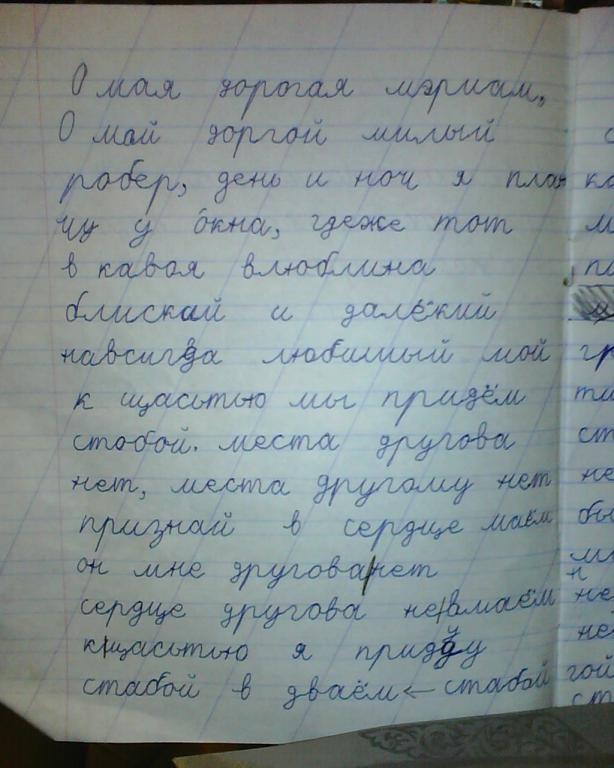 О мая дорогая мэриам,
О май доргой милый
робер, день и ноч я пла
чу у окна, гдеже тот
в кавоя влюблина
блискай и далёкий
навсигда любимый мой
к щасьтью мы придём
стобой. места другова
нет, места другому нет
признай в сердце маём
он мне другова нет
сердце другова не вмаём
к щасьтью я приду
стабой в дваём ← стабой